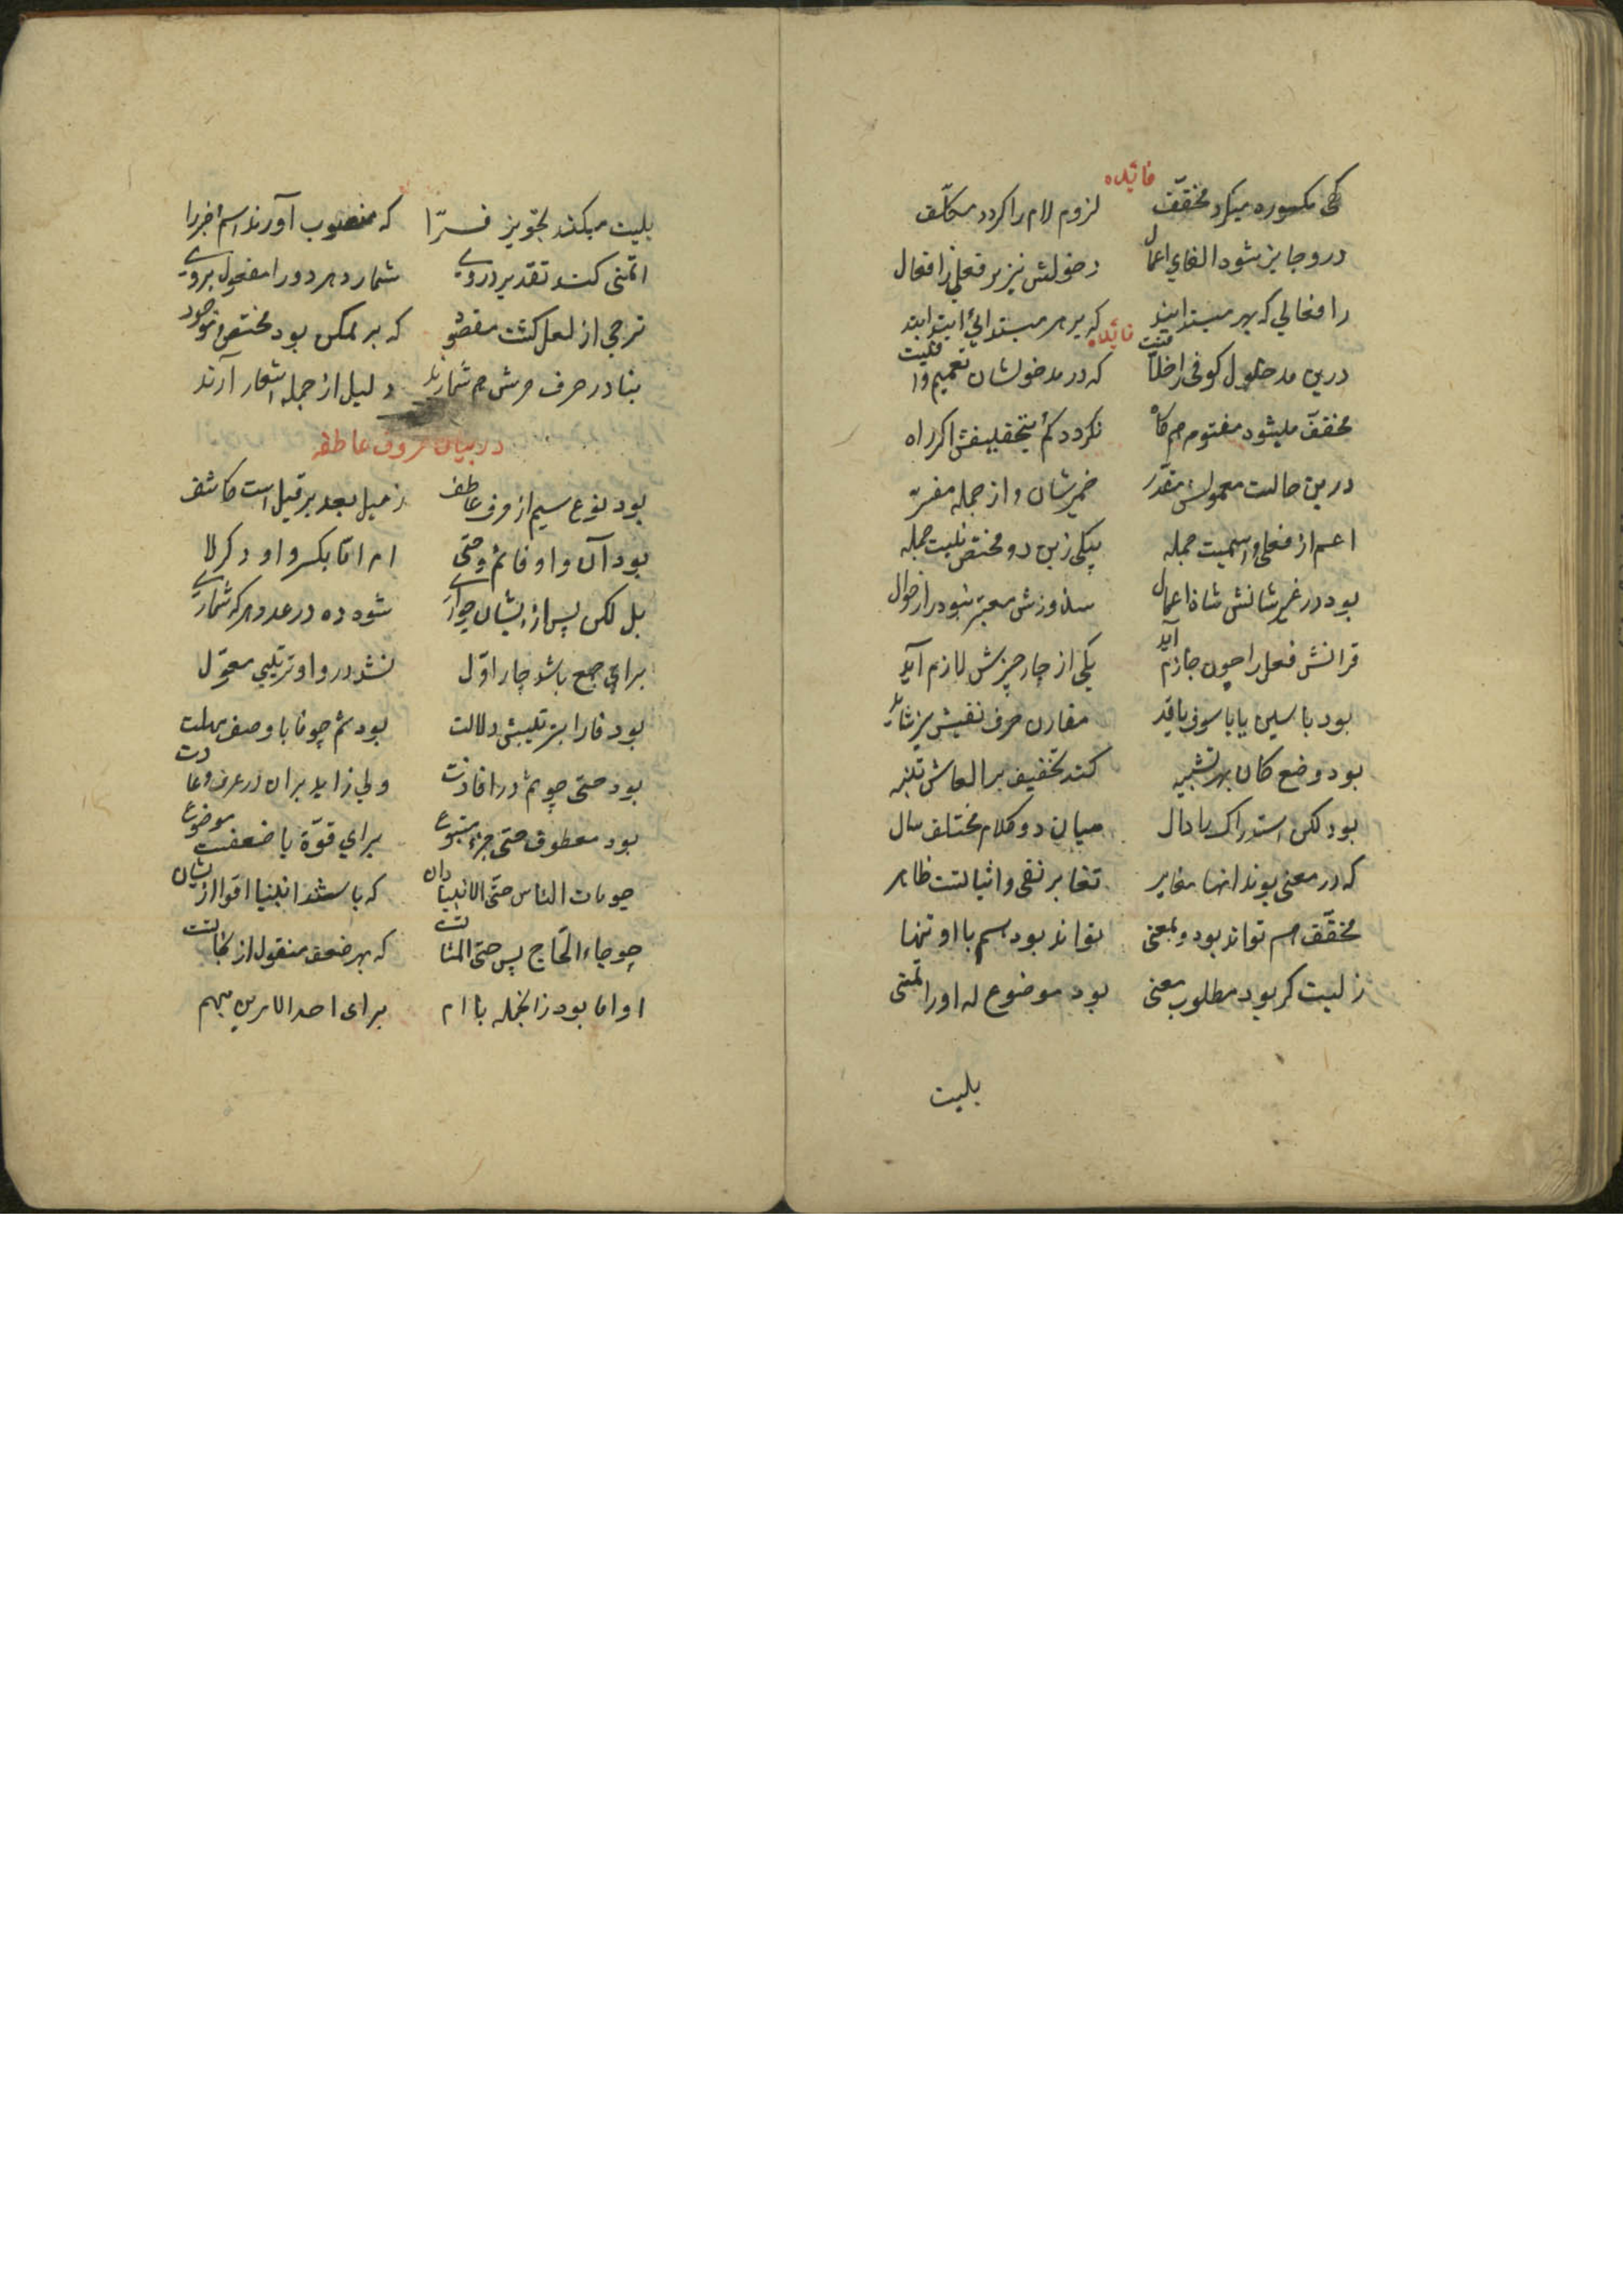 فائده
کهی مکسوره میگردد مخفف لزوم لام را گردد مکلف
درو جایز شود الغای اعمال دخولش نیز بر فعلی ز افعال
ز افعالی که بهر مبتدایند که بر هر مبتدائی ابتدایند
فائده
درین مدخول کوفی را خلافیت که در مدخولشان تعمیم وافیت
مخفف میشود مفتوح هم گاه نگردد کم بتخفیفش اگر راه
درین حالت معمولش مقدر ضمیر شان و از جمله مفسر
اعم از فعلی و اسمیت جمله بیکی زین دو مختص نیست جمله
بود در غیر شانش شاذ اعمال سند ورزش معتبر نبود در احوال
قرانش فعل را چون جازم آید یکی از چار چیزش لازم آید
بود با سین یا با سوف یا قد مقارن حرف نفیش نیز شاید
بود وضع کان بهر تشبیه کند تخفیف بر الغاش تنبیه
بود لکن استدراک را دال میان دو کلام مختلف سال
که در معنی بوند انها مغایر تغایر نفی و اثباتست ظاهر
مخفف هم تواند بود و بمعنی تواند بود هم با او تنها
ز لیت گر بود مطلوب معنی بود موضوع له او را تمنی
بلیت
بلیت میکند تجویز فرّا که منصوب آورند اسم خبر را
اتمنی کند تقدیر در وی شمارد هر دو را مفعول بر وی
ترجی از لعل گشت مقصود که بر ممکن بود مختص موجود
بنا در حرف جرش هم شمارند دلیل از جمله اشعار آرند
در بیان حروف عاطفه
بود نوع سیم از حرف عاطف ز میل بعد بر قبل است کاشف
بود آن واو فا ثم و حتی ام اما بکسر و او دگر لا
بل لکن پس از ایشان چو آری شود ده در عدد هر که شماری
برای جمع باشد چار اول نشد در واو ترتیبی معول
بود فا را بترتیبش دلالت بود ثم چو فا با وصف مهلت
بود حتی چو ثم در افادت ولی زاید بران در عرف و عادت
بود معطوف حتی جزء متبوع برای قوّة یا ضعفست موضوع
چو مات الناس حتّی الانبیا دان که باشند انبیا اقوا از یشان
چو جاء الحّاج پس حتی المشاتست که بهر ضعف منقول از نحاتست
او اما بود زانجمله با ام برای احد الامرین مبهم